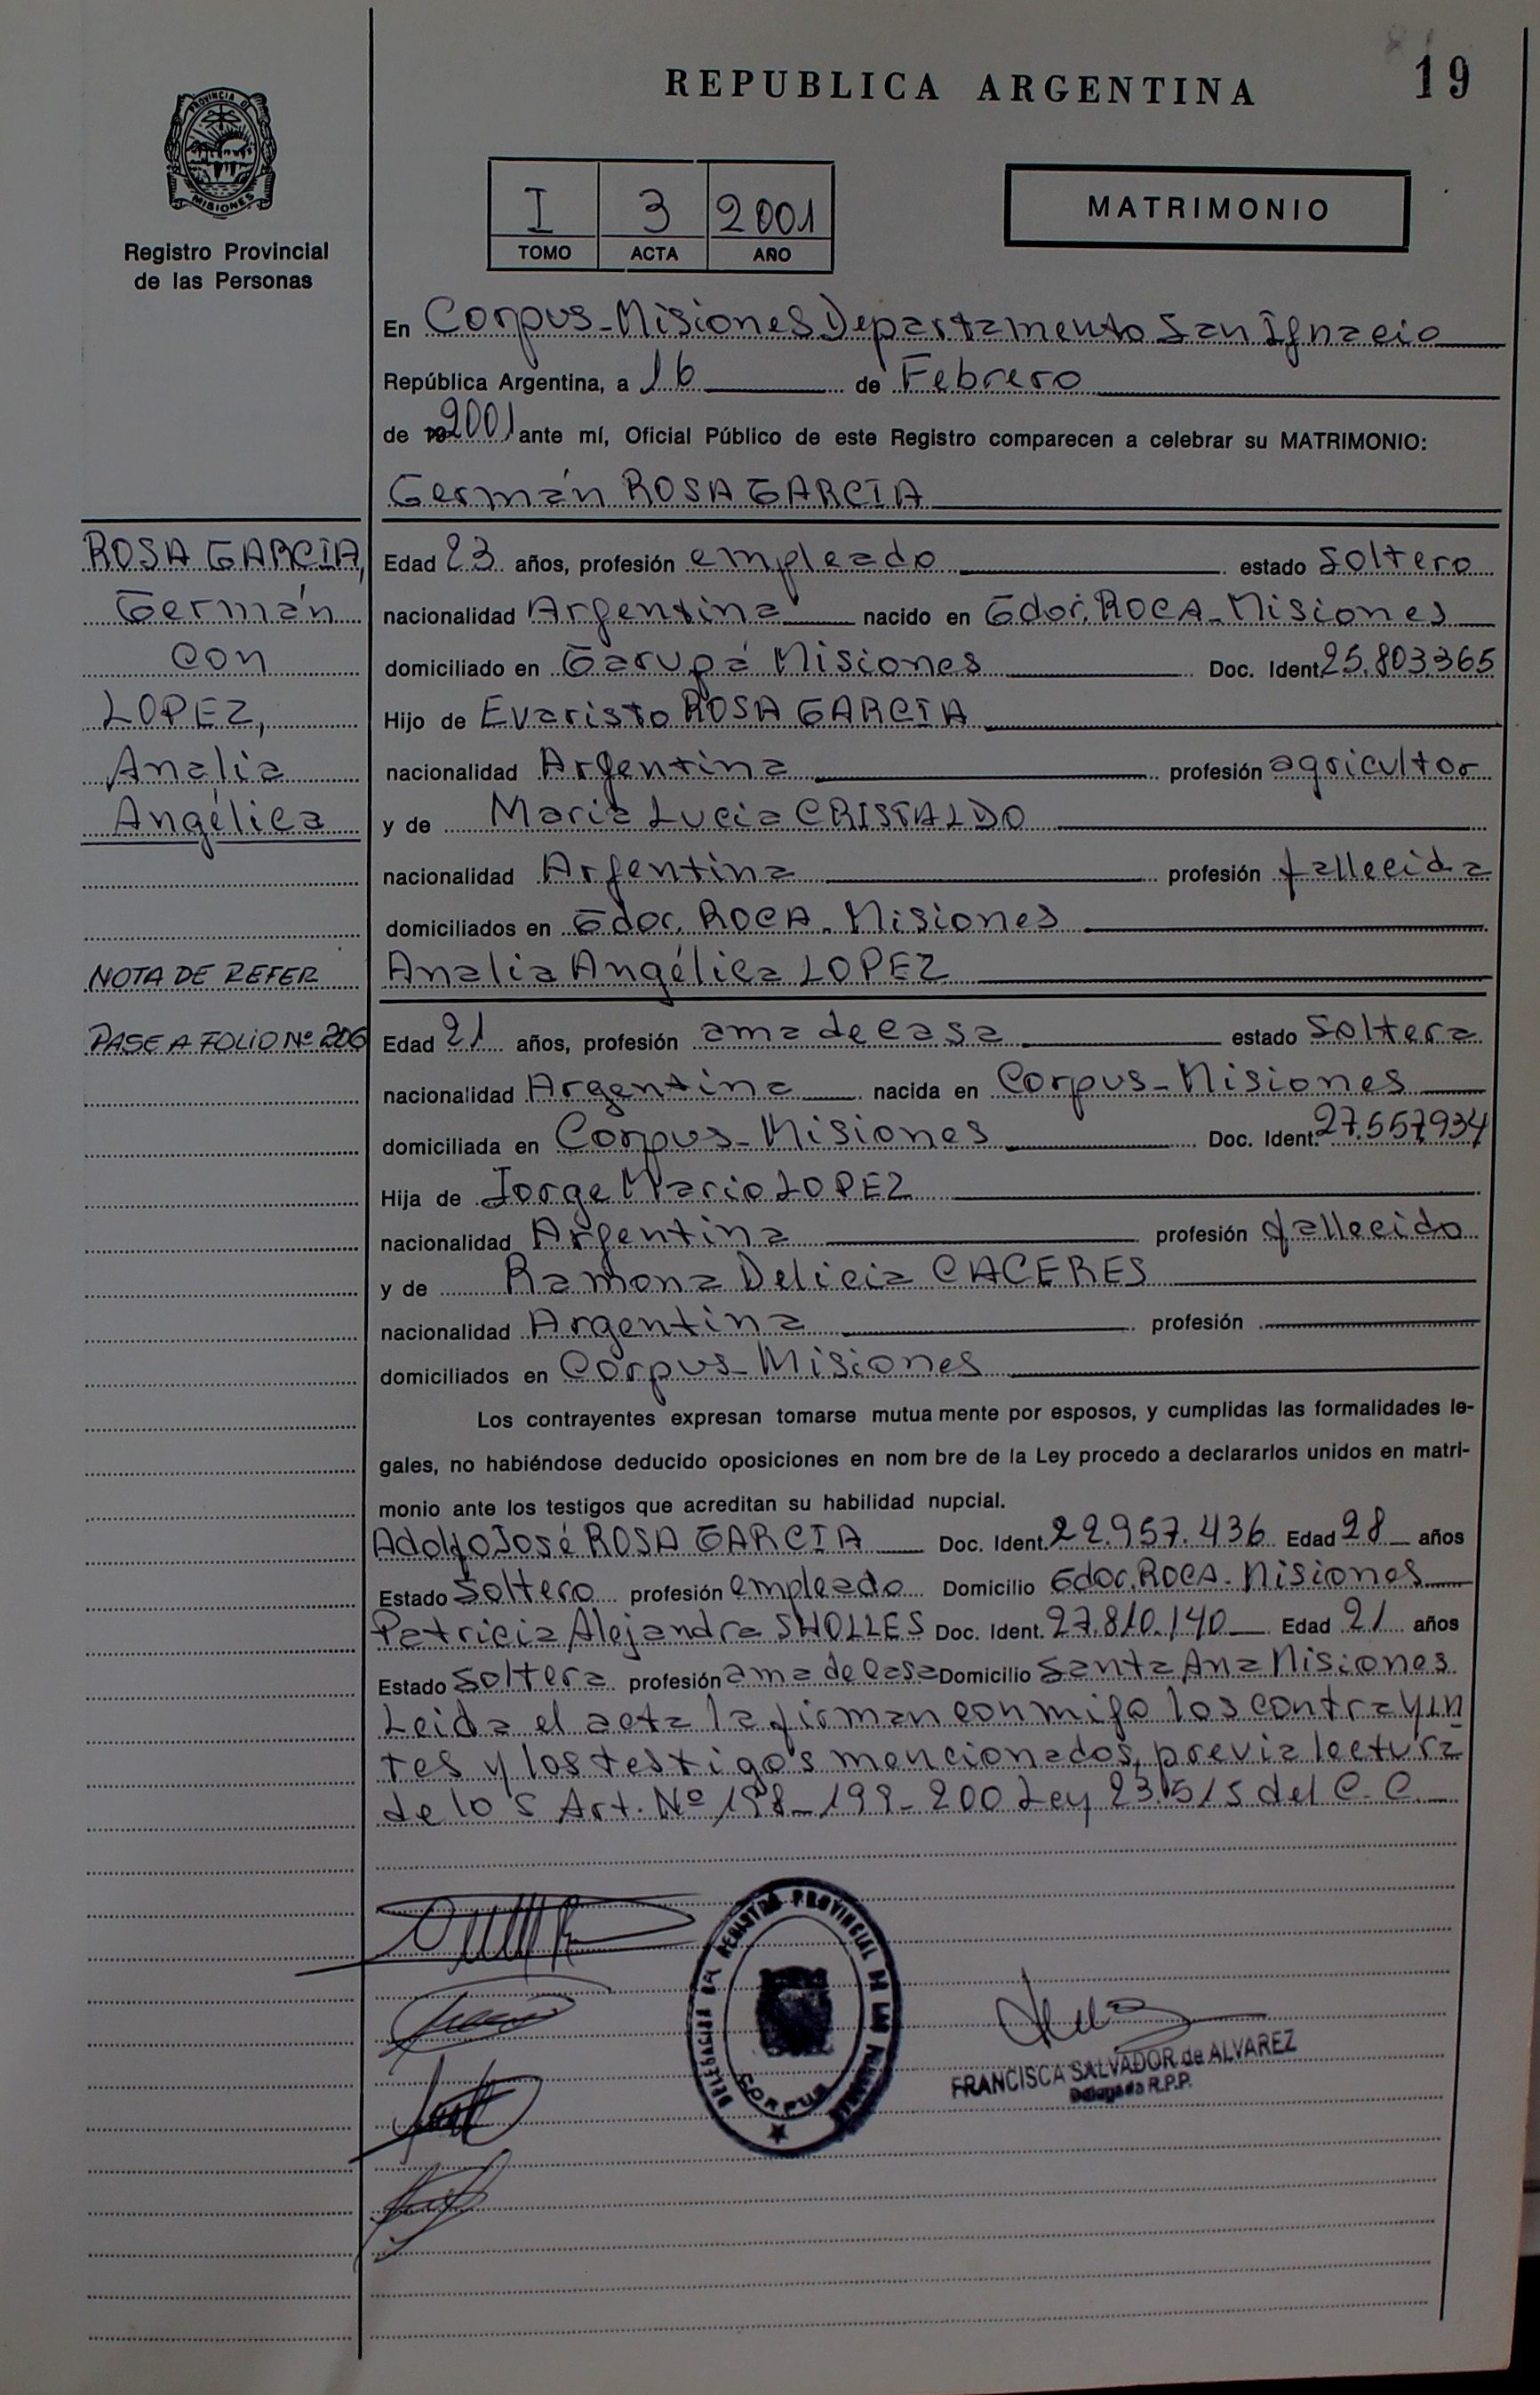 REPUBLICA ARGENTINA
19
PROVINCIA D
MISIONES
Registro Provincial
de las Personas
I 3 2001
TOMO ACTA AÑO
MATRIMONIO
En Corpus-Misiones Departamento San Ignacio
República Argentina, a 16 de Febrero
de 19 2001 ante mí, Oficial Público de este Registro comparecen a celebrar su MATRIMONIO:
Germán ROSA GARCIA
ROSA GARCIA,
Germán
con
LOPEZ,
Analia
Angélica
NOTA DE REFER
PASE A FOLIO Nº 206
Edad 23 años, profesión empleado estado soltero
nacionalidad Argentina nacido en Gdor. ROCA-Misiones
domiciliado en Garupá Misiones Doc. Ident. 25.803.365
Hijo de Evaristo ROSA GARCIA
nacionalidad Argentina profesión agricultor
y de Maria Lucia CRISTALDO
nacionalidad Argentina profesión fallecida
domiciliados en Gdor. ROCA-Misiones
Analia Angélica LOPEZ
Edad 21 años, profesión ama de casa estado soltera
nacionalidad Argentina nacida en Corpus-Misiones
domiciliada en Corpus-Misiones Doc. Ident. 27.557.934
Hija de Jorge Mario LOPEZ
nacionalidad Argentina profesión fallecido
y de Ramona Delicia CACERES
nacionalidad Argentina profesión
domiciliados en Corpus-Misiones
Los contrayentes expresan tomarse mutua mente por esposos, y cumplidas las formalidades le-
gales, no habiéndose deducido oposiciones en nom bre de la Ley procedo a declararlos unidos en matri-
monio ante los testigos que acreditan su habilidad nupcial.
Adolfo José ROSA GARCIA Doc. Ident. 22.957.436 Edad 28 años
Estado soltero profesión empleado Domicilio Gdor. ROCA-Misiones
Patricia Alejandra SHOLLES Doc. Ident. 27.810.140 Edad 21 años
Estado soltera profesión ama de casa Domicilio Santa Ana Misiones
Leida el acta la firman conmigo los contrayen
tes y los testigos mencionados, previa lectura
de los Art. Nº 198-199-200 Ley 23.515 del C.C.
DELEGACION DEL REGISTRO PROVINCIAL DE LAS PERSONAS
CORPUS
FRANCISCA SALVADOR de ALVAREZ
Delegada R.P.P.